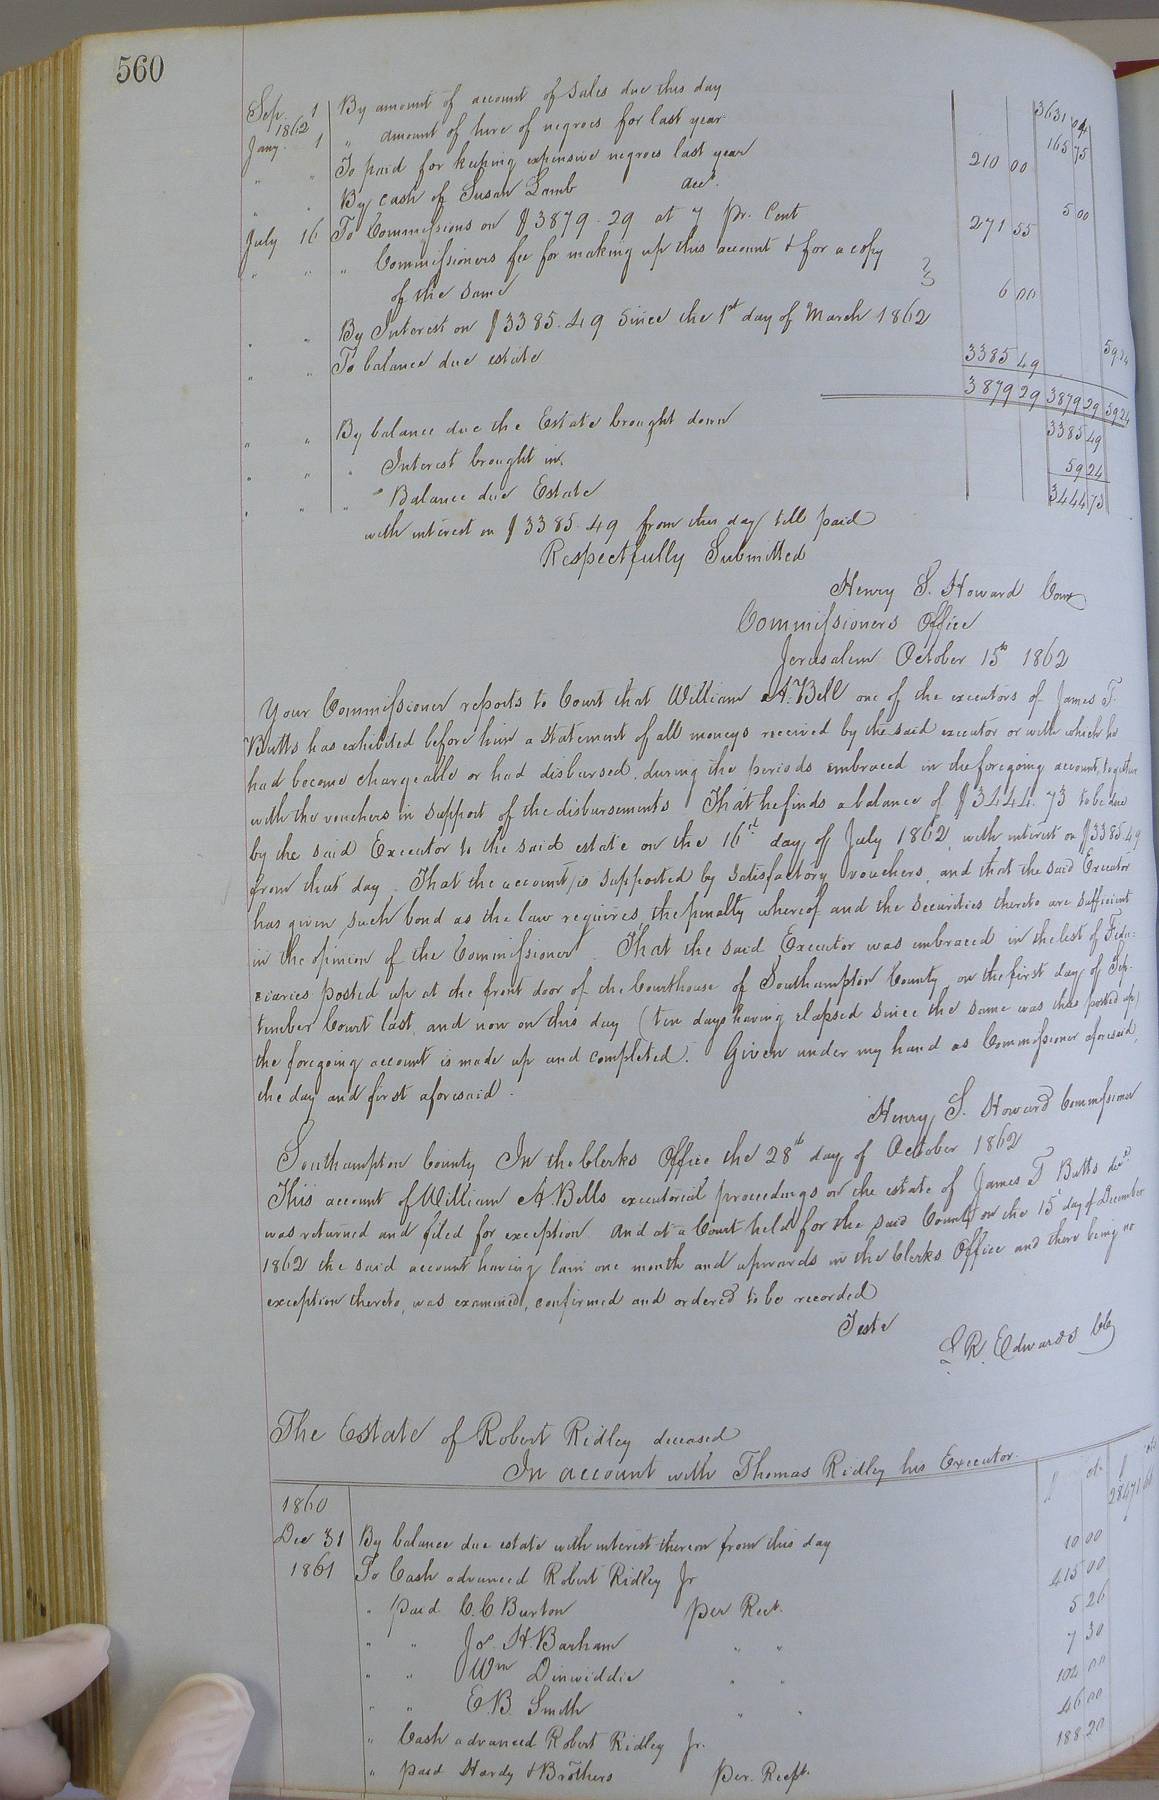 560
Sep 1 By amount of account of sales due this day 3631 04
1862
Jany. 1 " amount of hire of negroes for last year 165 75
" " To paid for keeping expensive negroes last year 210 00
" " By cash of Susan Lamb acct. 5 00
July 16 To Commissions on $3879.29 at 7 pr. Cent 271 55
" " " Commissioners fee for making up this account & for a copy
of the same 6 00
" " By Interest on $3385.49 Since the 1st day of March 1862 59 24
" " To balance due estate 3385 49
3879 29 3879 29 59 24
" " By balance due the Estate brought down 3385 49
" " " Interest brought in. 59 24
" " " Balance due Estate 3444 73
with interest on $3385.49 from this day till paid
Respectfully Submitted
Henry S. Howard Comr
Commissioners Office
Jerusalem October 15th 1862
Your Commissioner reports to Court that William A. Bell one of the executors of James T.
Butts has exhibited before him a Statement of all moneys received by the said executor or with which he
had become chargeable or had disbursed, during the periods embraced in the foregoing account, together
with the vouchers in support of the disbursements That he finds a balance of $3444.73 to be due
by the said Executor to the said estate on the 16th day of July 1862, with interest on $3385.49
from that day. That the account is supported by satisfactory vouchers, and that the said Executor
has given such bond as the law requires, the penalty whereof and the securities thereto are sufficient
in the opinion of the Commissioner. That the said Executor was embraced in the list of Fidu-
ciaries posted up at the front door of the Courthouse of Southampton County on the first day of Sep-
tember Court last, and now on this day (ten days having elapsed since the same was thus posted up)
the foregoing account is made up and completed. Given under my hand as Commissioner aforesaid,
the day and first aforesaid.
Henry S. Howard Commissioner
Southampton County In the Clerks Office the 28th day of October 1862
This account of William A. Bells executorial proceedings on the estate of James T Butts decd.
was returned and filed for exception. And at a Court held for the said County on the 15t day of December
1862 the said account having lain one month and upwards in the Clerks Office and there being no
exception thereto, was examined, confirmed and ordered to be recorded
Teste
L R. Edwards CC
The Estate of Robert Ridley deceased
In account with Thomas Ridley his Executor
1860 $ ct. $
Dec 31 By balance due estate with interest thereon from this day 28471
1861 To Cash advanced Robert Ridley Jr 10 00
" paid C. C. Burton per Rect. 415 00
" " Jos. H. Barham " " 5 26
" " Wm Dinwiddie " " 7 30
" " E. B. Smith " " 102 00
" Cash advanced Robert Ridley Jr. 46 00
" paid Hardy & Brothers per. Recpt. 188 20